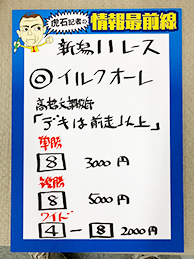 虎石記者の
情報最前線
新潟11レース
◎イルクオーレ
「デキは前走以上」
単勝
8 3000円
複勝
8 5000円
ワイド
4-8 2000円